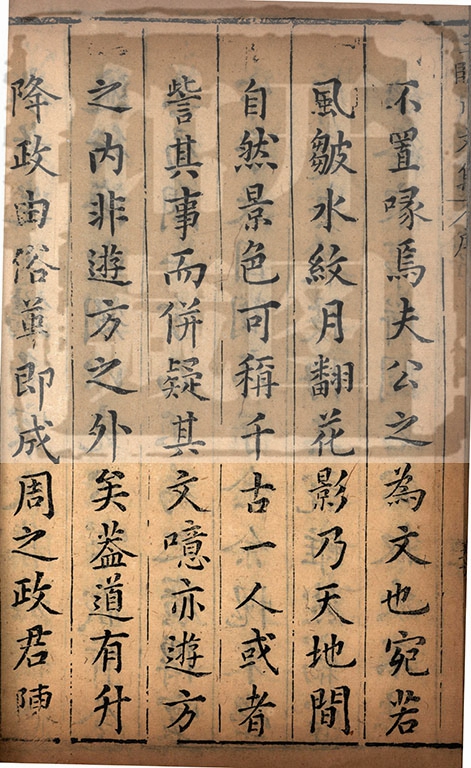 不置喙焉夫公之為文也宛若
風皺水紋月翻花影乃天地間
自然景色可稱千古一人或者
訾其事而併疑其文噫亦遊方
之內非遊方之外矣葢道有升
降政由俗革即成周之政君陳